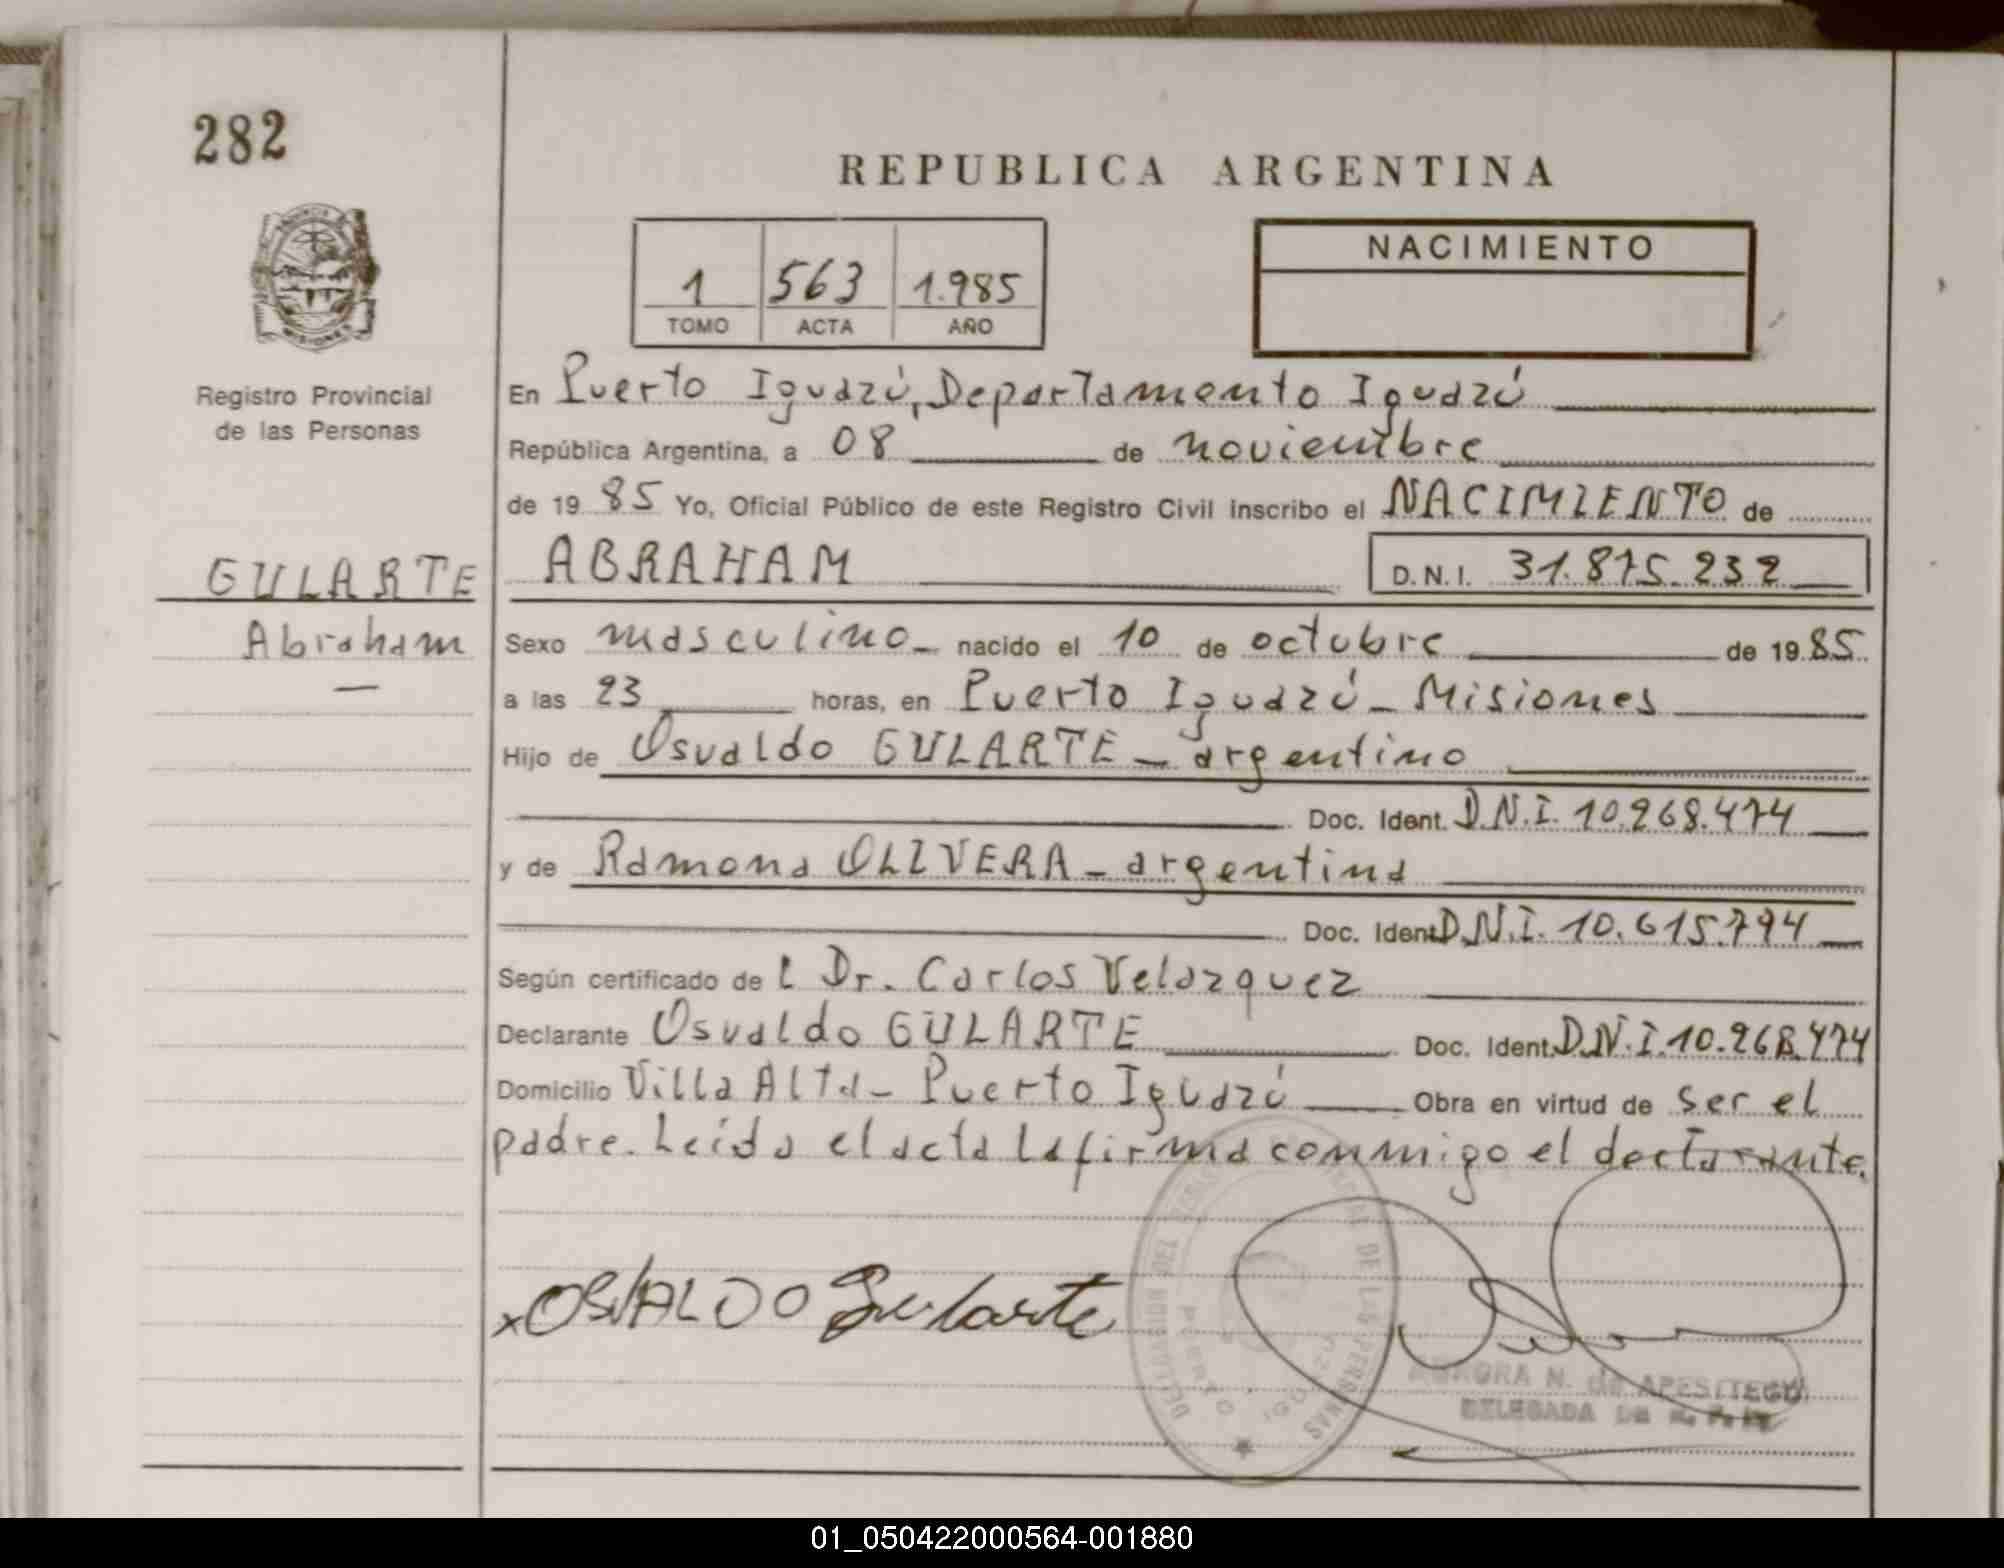 282
REPUBLICA ARGENTINA
NACIMIENTO
1 563 1.985
TOMO ACTA AÑO
Registro Provincial
de las Personas
En Puerto Iguazú, Departamento Iguazú
República Argentina, a 08 de noviembre
de 19 85 Yo, Oficial Público de este Registro Civil inscribo el NACIMIENTO de
GULARTE
Abraham
ABRAHAM D.N.I. 31.875.232
Sexo masculino nacido el 10 de octubre de 19 85
a las 23 horas, en Puerto Iguazú - Misiones
Hijo de Osvaldo GULARTE - argentino
Doc. Ident. D.N.I. 10.268.474
y de Ramona OLIVERA - argentina
Doc. Ident D.N.I. 10.615.794
Según certificado de l Dr. Carlos Velazquez
Declarante Osvaldo GULARTE Doc. Ident. D.N.I. 10.268.474
Domicilio Villa Alta - Puerto Iguazú Obra en virtud de ser el
padre. Leída el acta la firma conmigo el declarante.
x OSVALDO Gularte
DELEGACION DEL DE LAS PERSONAS
PUERTO IGUAZU
AURORA N. de APESTEGUI
DELEGADA
01_050422000564-001880